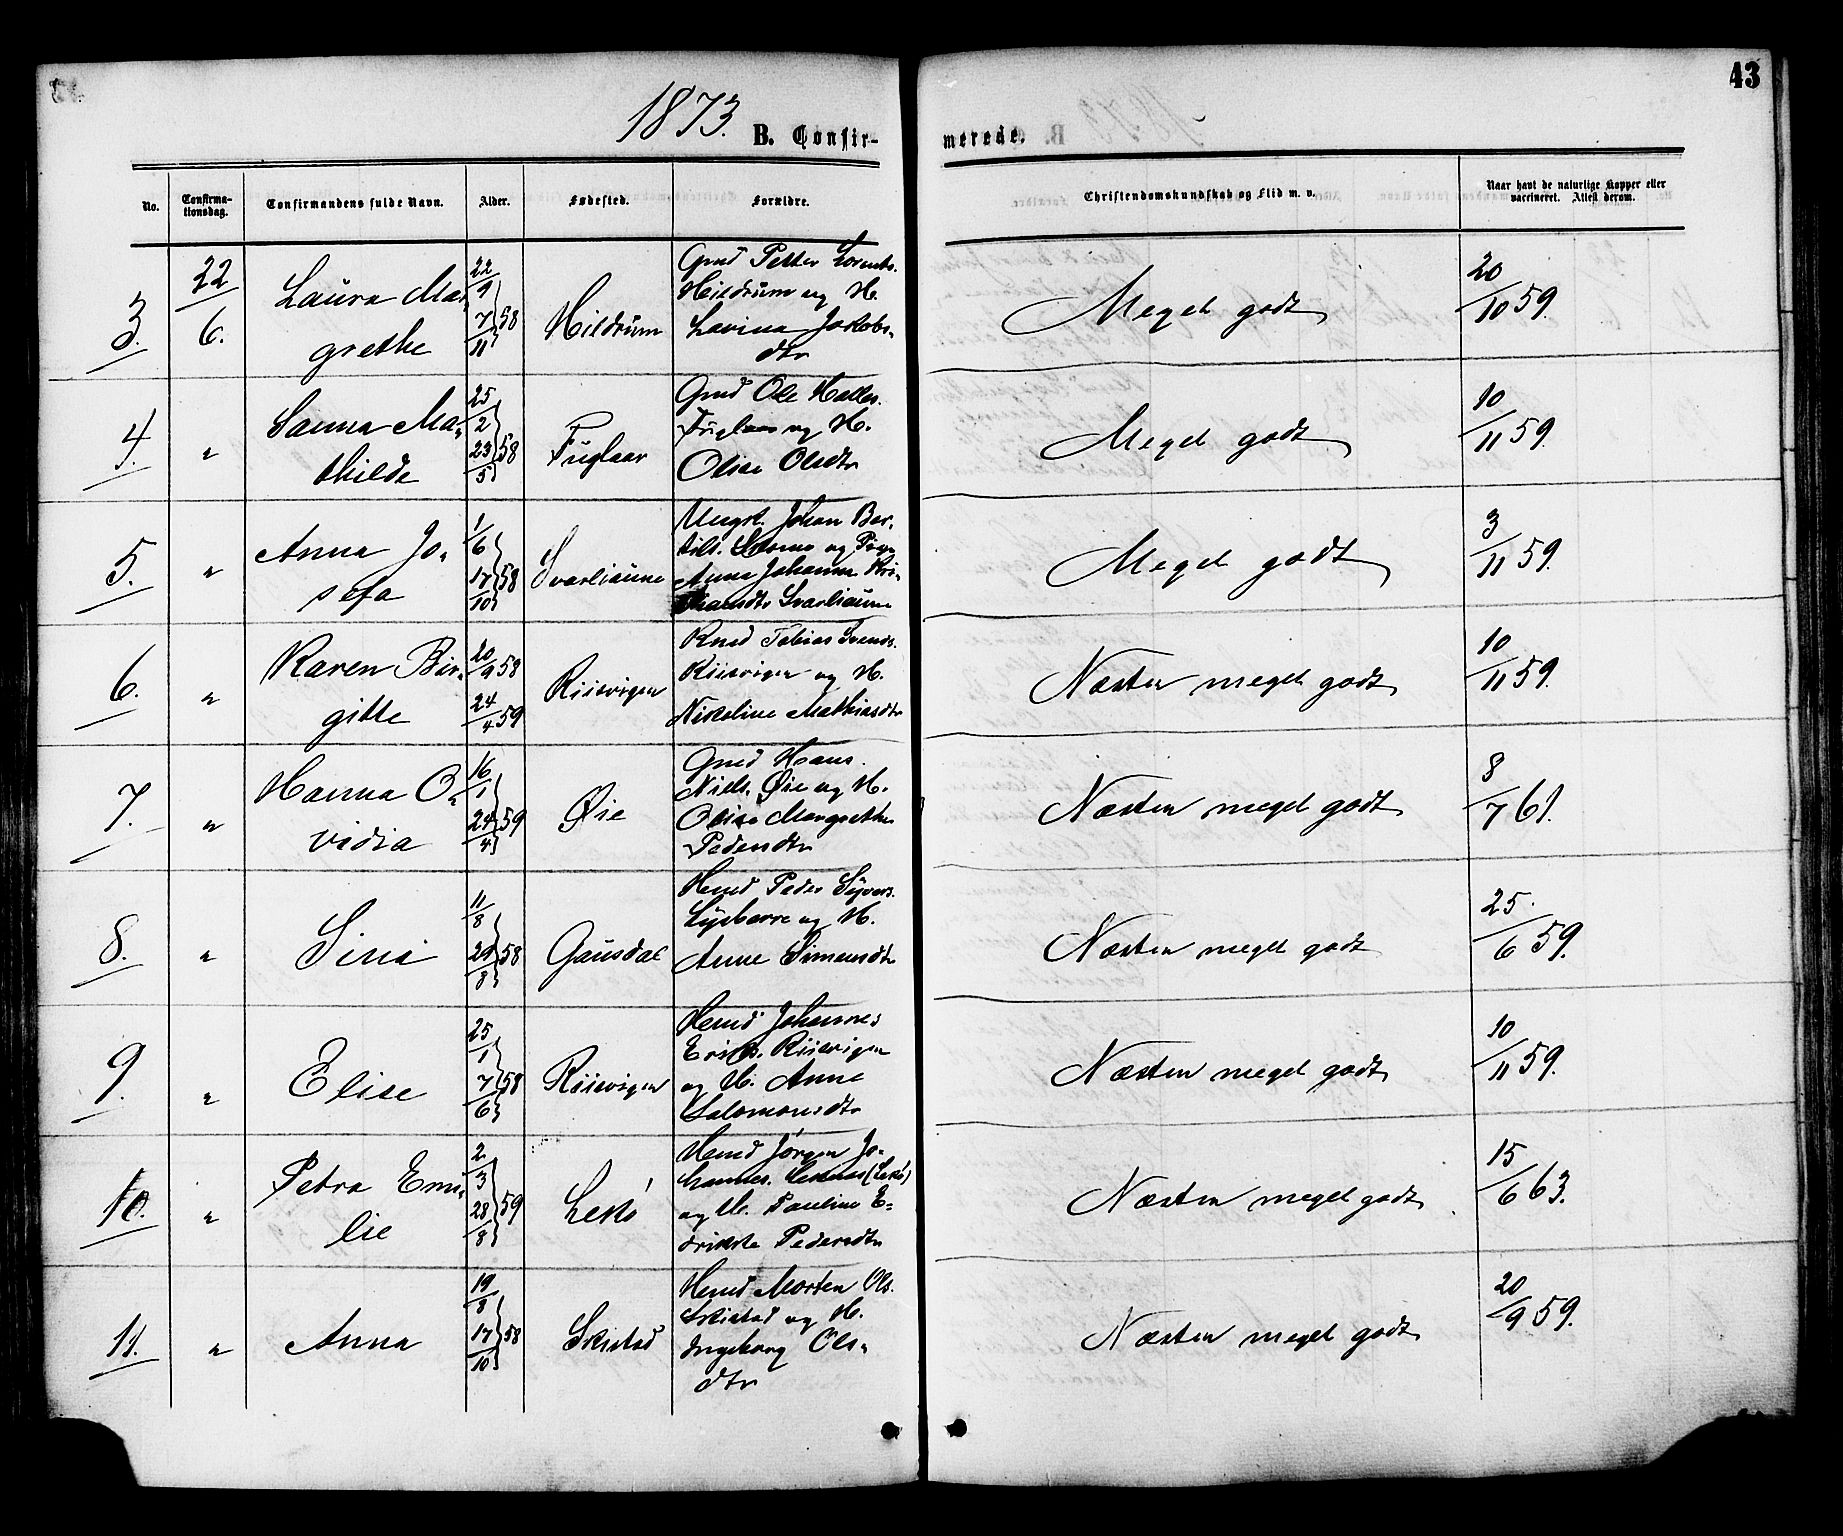 43
1873.
B. Confir- merede.
No.
Confirma-
tionsdag.
Confirmandens fulde Navn.
Alder.
Fødested.
Forældre.
Christendomskundskab og Flid m. v.
Naar havt de naturlige Kopper eller
vaccineret. Attest derom.
3. 22/6. Laura Mar-
grethe
22/9 7/11 58
Hildrum
Gmd Petter Lorents.
Hildrum og H.
Lovina Jakobs-
dtr
Meget godt
20/10 59.
4. " Sanna Ma-
thilde
25/2 23/5 58
Fuglaar
Gmd Ole Halls.
Fuglaas og H.
Olise Olsdtr
Meget godt
10/11 59.
5. " Anna Jo-
sefa
1/6 17/10 58
Svarliaune
Ungk. Johan Ber-
og Pige
Anna Johanna
Svarliaune
Meget godt
3/11 59.
6. " Karen Bir-
gitte
20/9 58 24/4 59
Riisvigen
Tobias Svends.
Riisvigen og H.
Nikoline Mathiasdtr
Næsten meget godt
10/11 59.
7. " Hanna O-
vidia
16/1 24/4 59
Øie
Gmd Hans
Niels. Øie og H.
Olise Margrethe
Pedersdtr
Næsten meget godt
8/7 61.
8. " Sina
11/8 29/8 58
Gausdal
Hmd Peder Syvers.
og H.
Anne Simensdtr
Næsten meget godt
25/6 59.
9. " Elise
25/1 7/6 58
Riisvigen
Hmd Johannes
Eriks. Riisvigen
og H. Anne
Salomonsdtr
Næsten meget godt
10/11 59.
10. " Petra Emi-
lie
2/3 28/8 59
Lekø
Hmd Jørgen Jo-
hannes. (Lekø)
og H. Pauline E-
drikke Pedersdtr
Næsten meget godt
15/6 63.
11. " Anna
19/8 17/10 58
Skistad
Hmd Morten Ols.
Skistad og H.
Ingeborg Ols-
dtr
Næsten meget godt
20/9 59.